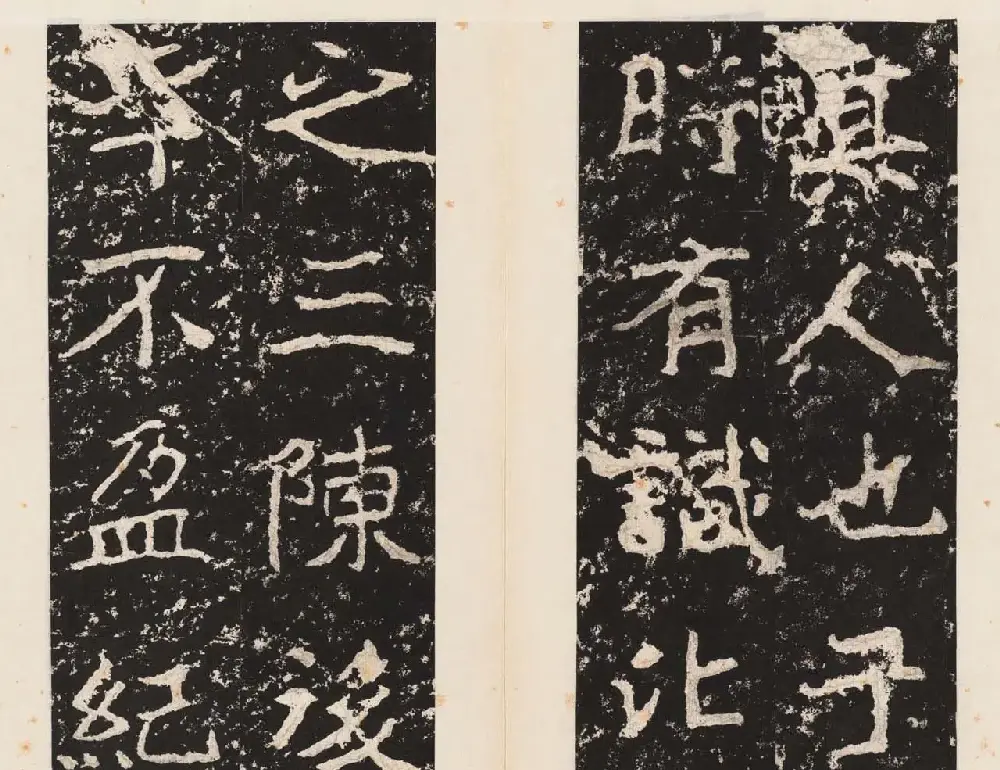 真人也于
時有識比
之三陳後
年不盈紀